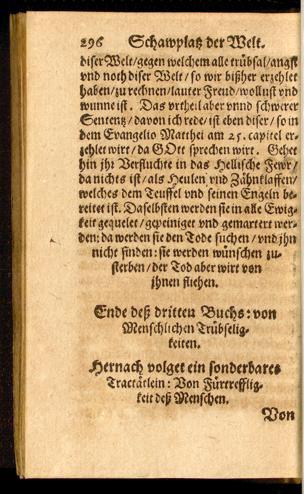 296 Schawplatz der Welt.
diser Welt/gegen welchem alle trübsal/angst
vnd noch diser Welt/so wir bißher erzehlet
haben/zu rechnen/lauter Freud/wollust vnd
wunne ist. Das vrtheil aber vnnd schwerer
Sententz/davon ich rede/ist eben diser/so in
dem Evangelio Matthei am 25. capitel er-
zehlet wirt/da GOtt sprechen wirt. Gehet
hin jhr Verfluchte in das Hellische Fewr/
da nichts ist/als Heulen vnd Zähnklaffen/
welches dem Teuffel vnd seinen Engeln be-
reitet ist. Daselbsten werden sie in alle Ewig-
keit gequelet/gepeiniget vnd gemartert wer-
den: da werden sie den Tode suchen/vnd jhn
nicht finden: sie werden wünschen zu-
sterben/der Tod aber wirt von
jhnen fliehen.
Ende deß dritten Buchs: von
Menschlichen Trübselig-
keiten.
Hernach volget ein sonderbares
Tractätlein: Von Fürtrefflig-
keit deß Menschen.
Von